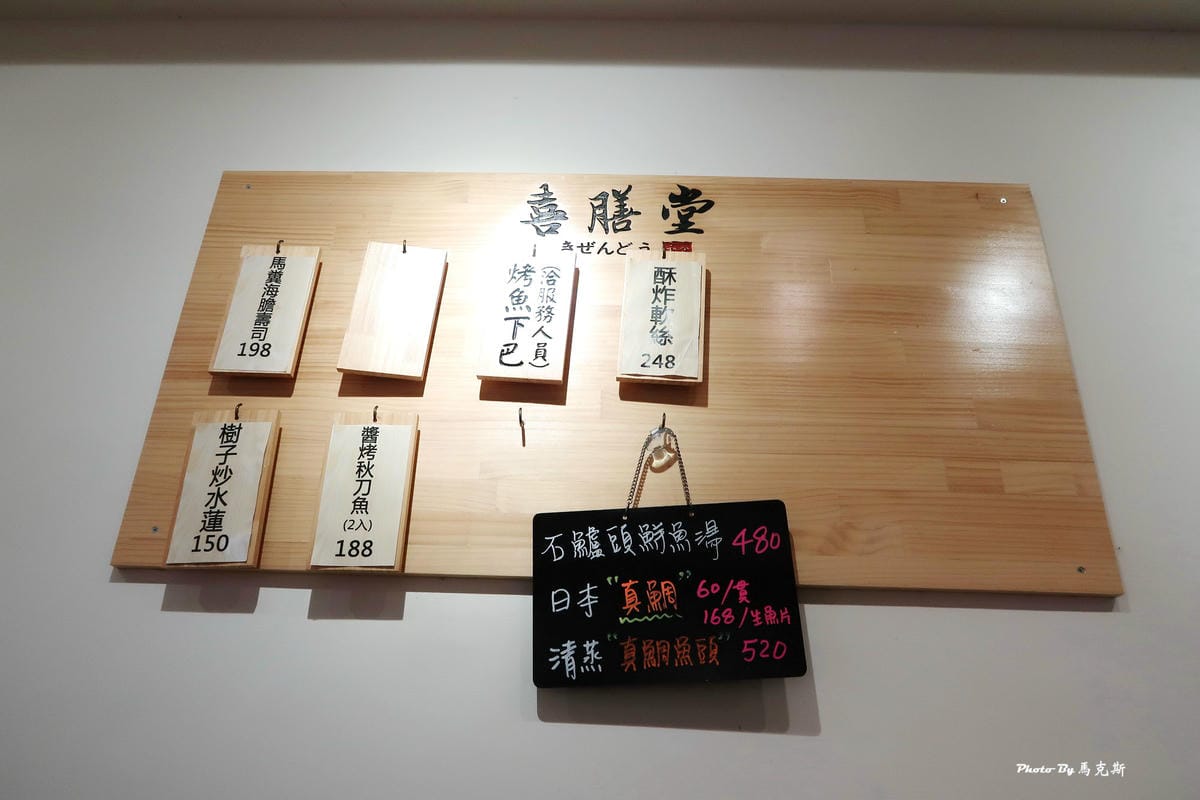 喜膳堂
きぜんどう
馬糞海膽壽司
198
(洽服務人員)
烤魚下巴
酥炸軟絲
248
樹子炒水蓮
150
醬烤秋刀魚
(2入)
188
石鱸頭鮮魚湯 480
日本"真鯛" 60/貫
168/生魚片
清蒸"真鯛魚頭" 520
Photo By 馬克斯